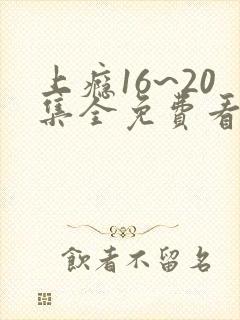 上瘾16~20
集全免費看
飲者不留名